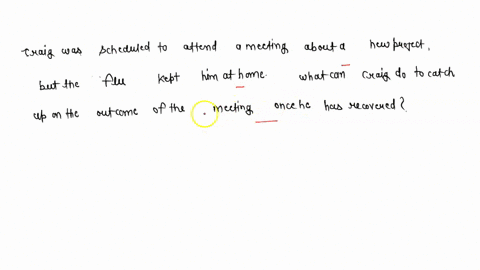 Craig was scheduled to attend a meeting about a new project,
but the flu kept him at home. what can Craig do to catch
up on the outcome of the meeting once he has recovered?